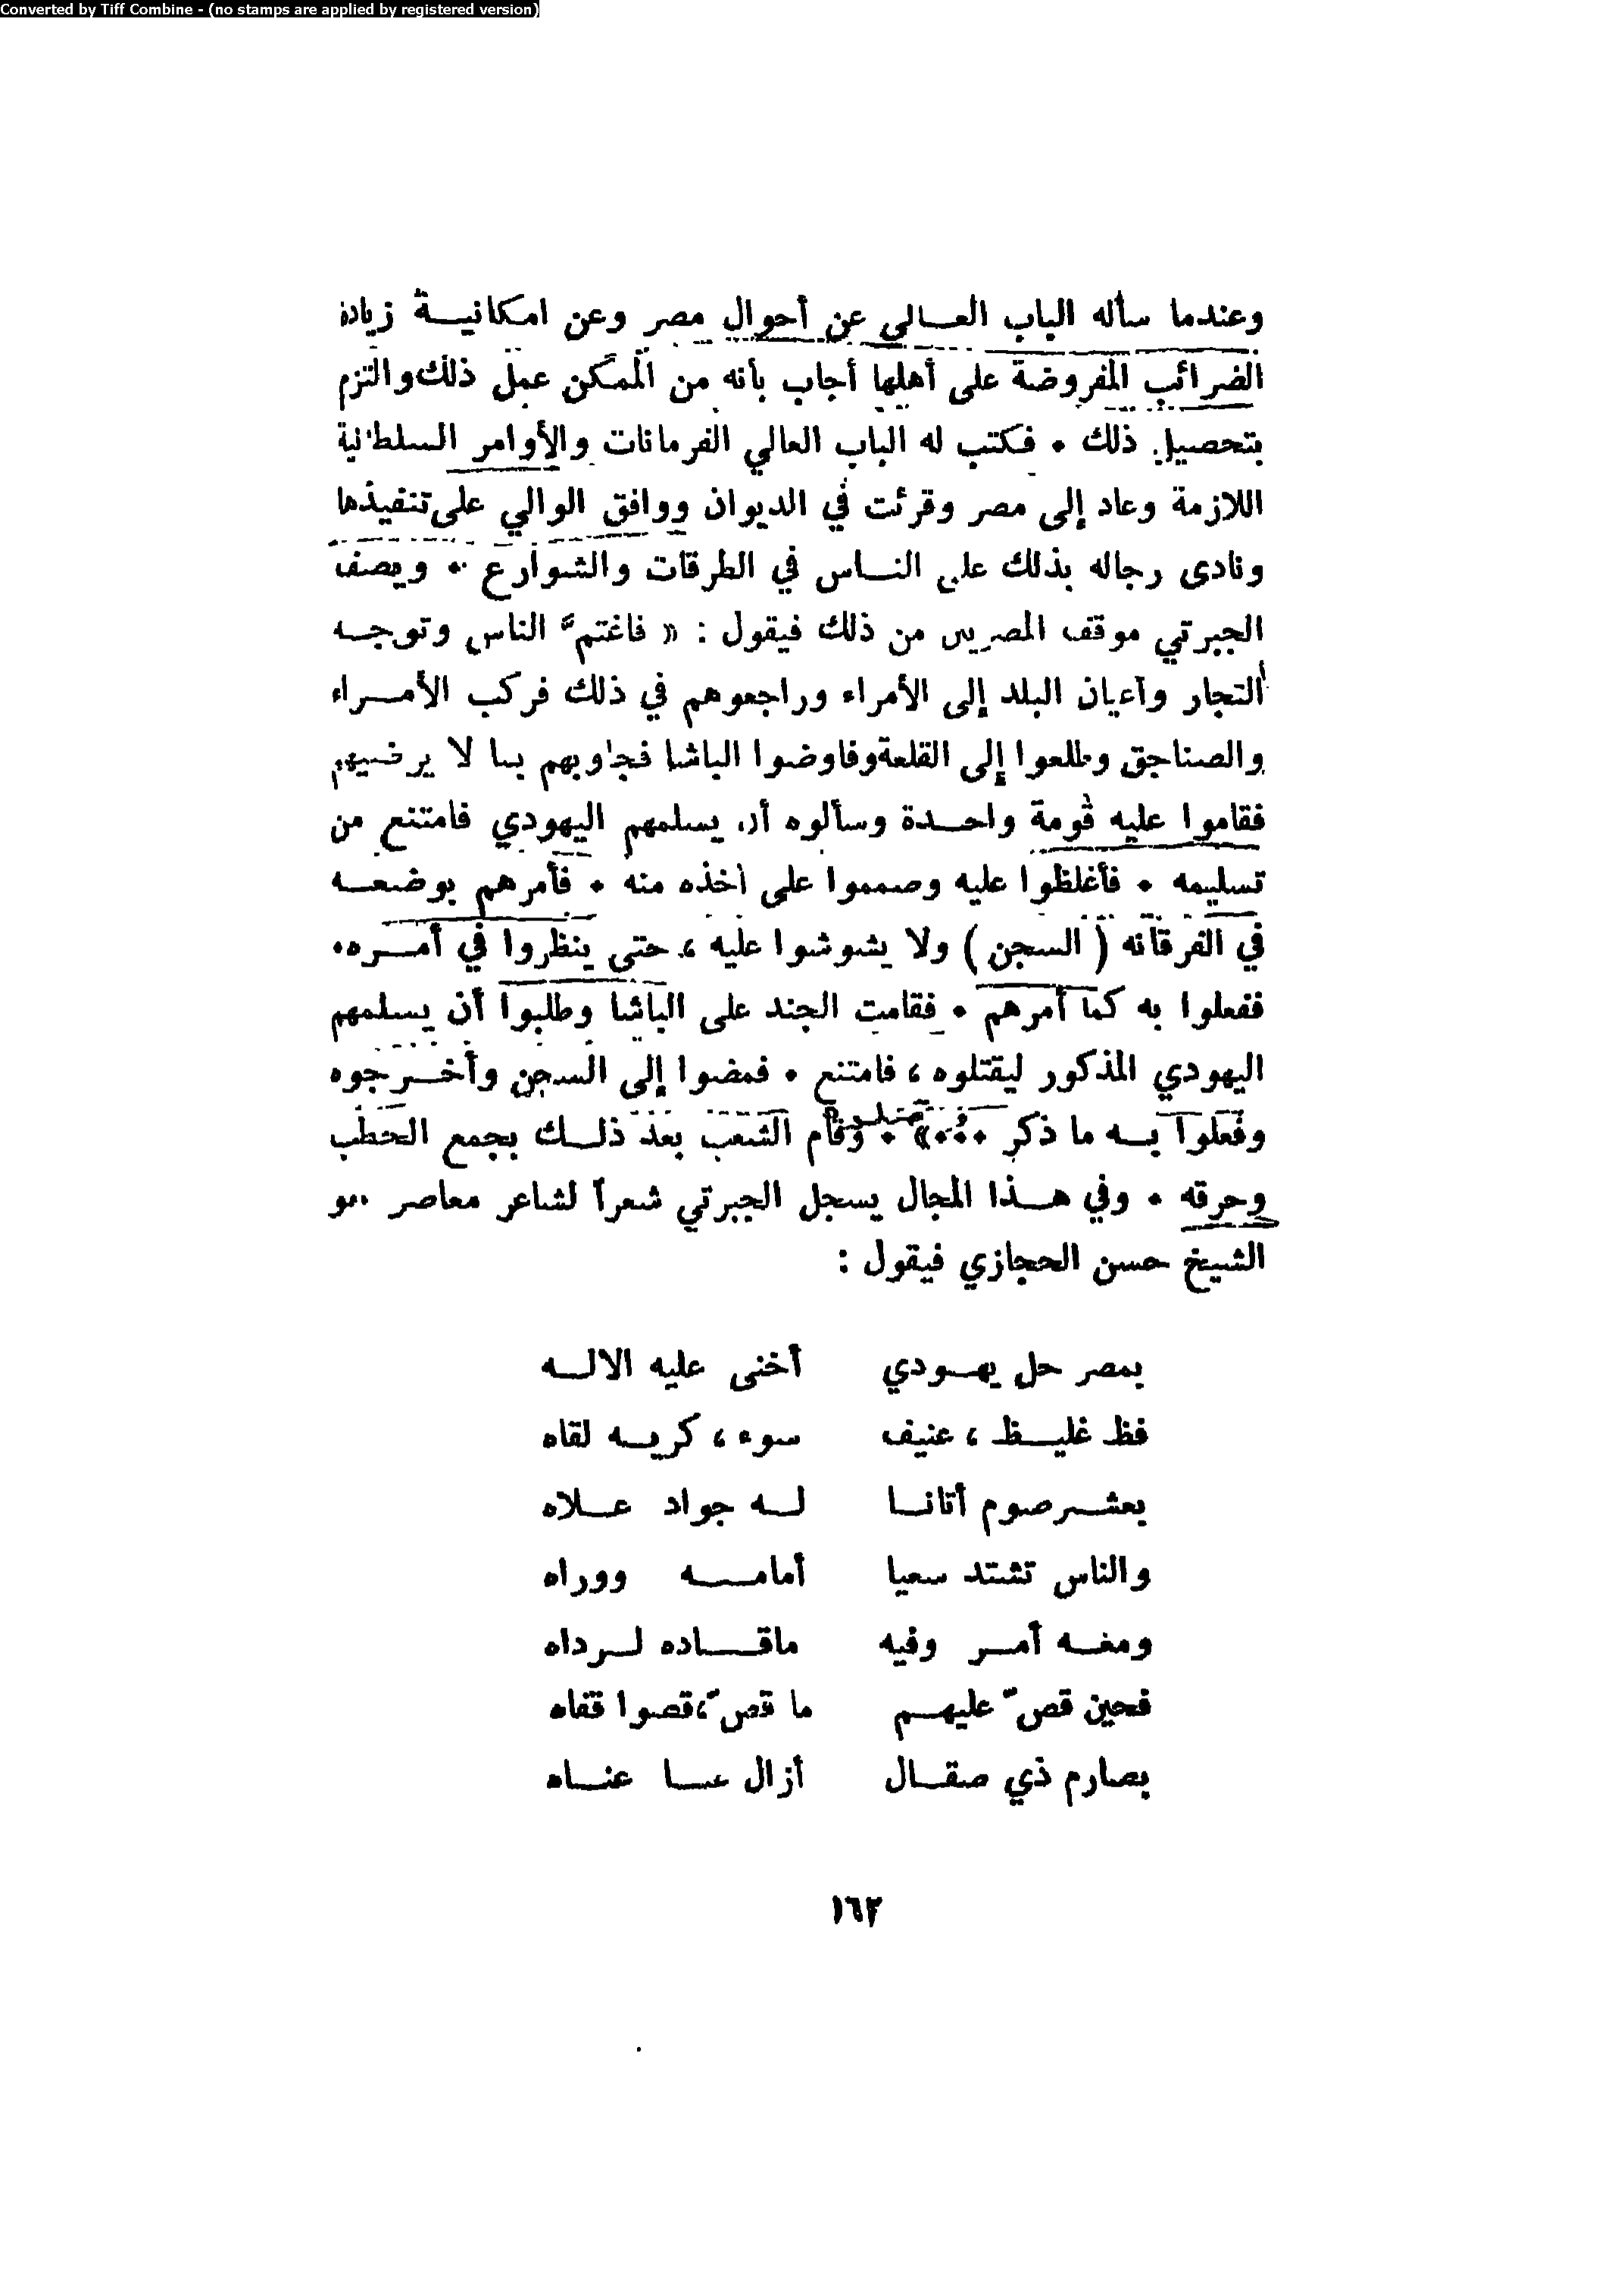 Converted by Tiff Combine - (no stamps are applied by registered version)
وعندما سأله الباب العـالي عن أحوال مصر وعن امكانيـة زيادة
الضرائب المفروضة على أهلها أجاب بأنه من الممكن عمل ذلك والتزم
بتحصيل ذلك • فكتب له الباب العالي الفرمانات والأوامر السلطانية
اللازمة وعاد إلى مصر وقرئت في الديوان ووافق الوالي على تنفيذها
ونادى رجاله بذلك على النـاس في الطرقات والشوارع • ويصف
الجبرتي موقف المصريين من ذلك فيقول : « فاغتمّ الناس وتوجـه
التجار وأعيان البلد إلى الأمراء وراجعوهم في ذلك فركب الأمـراء
والصناجق وطلعوا إلى القلعة وفاوضوا الباشا فجاوبهم بما لا يرضيهم
فقاموا عليه قومة واحـدة وسألوه أن يسلمهم اليهودي فامتنع من
تسليمه • فأغلظوا عليه وصمموا على أخذه منه • فأمرهم بوضعـه
في الفرقانه ( السجن ) ولا يشوشوا عليه ، حتى ينظروا في أمـره •
ففعلوا به كما أمرهم • فقامت الجند على الباشا وطلبوا أن يسلمهم
اليهودي المذكور ليقتلوه ، فامتنع • فمضوا إلى السجن وأخـرجوه
وفعلوا بـه ما ذكر ••••» • وقام الشعب بعد ذلـك بجمع الحطب
وحرقه • وفي هـذا المجال يسجل الجبرتي شعراً لشاعر معاصر هو
الشيخ حسن الحجازي فيقول :
بمصر حل يهـودي أخنى عليه الالـه
فظ غليـظ ، عنيف سوء ، كريـه لقاه
بعشـر صوم أتانـا لـه جواد عـلاه
والناس تشتد سعيا أمامـه ووراه
ومعـه أمـر وفيه ماقـاده لـرداه
فحين قصّ عليهـم ما قصّ، قصوا قفاه
بصارم ذي صقـال أزال عنـا عنـاه
١٦٢